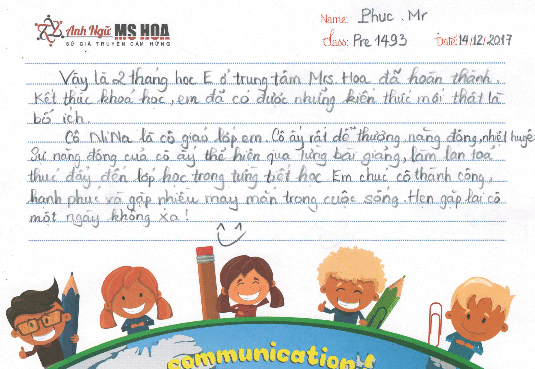 Anh Ngữ MS HOA
SỨ GIẢ TRUYỀN CẢM HỨNG
Name: Phuc . Mr
Class: Pre 1493 Date: 14/12/2017
Vậy là 2 tháng học E ở trung tâm Mrs. Hoa đã hoàn thành.
Kết thúc khoá học, em đã có được những kiến thức mới thật là
bổ ích.
Cô NiNa là cô giáo lớp em. Cô ấy rất dễ thương, năng động, nhiệt huyế
Sự năng động của cô ấy thể hiện qua từng bài giảng, làm lan toả
thúc đẩy đến lớp học trong từng tiết học Em chúc cô thành công,
hạnh phúc và gặp nhiều may mắn trong cuộc sống. Hẹn gặp lại cô
một ngày không xa!
communication